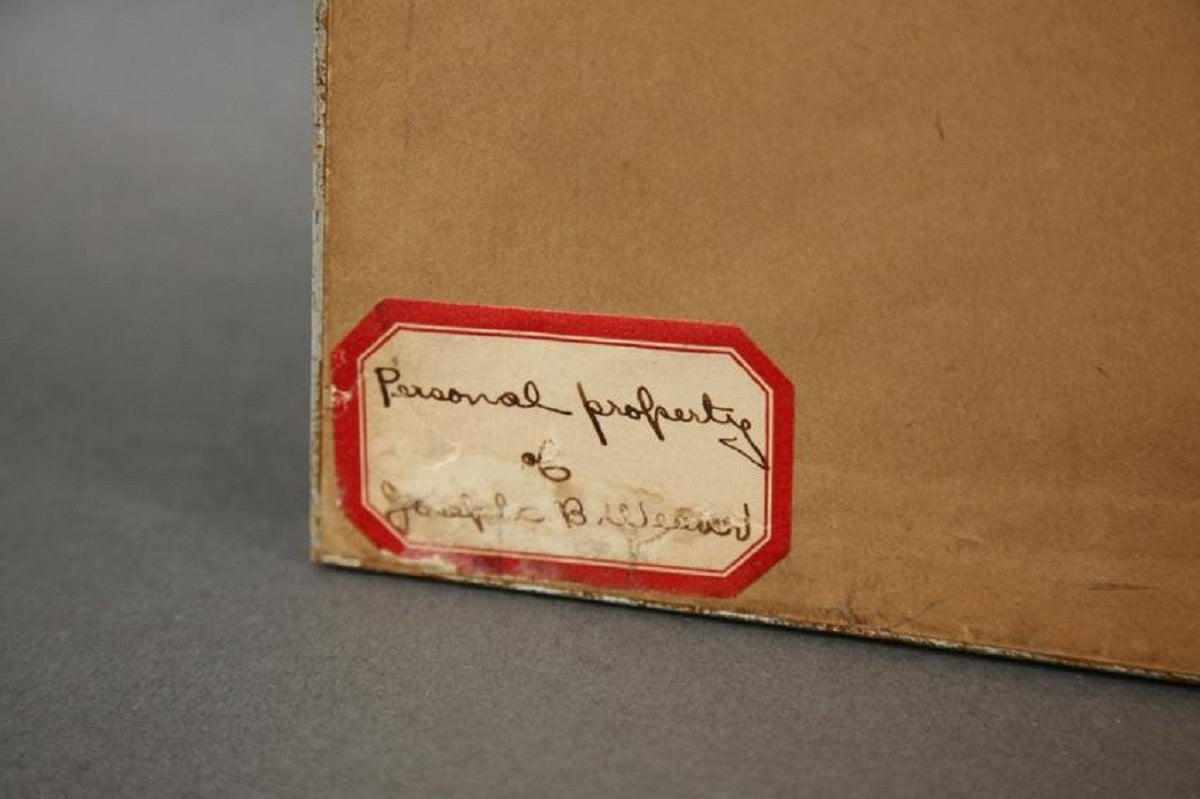 Personal property
of
Joseph B. Weaver